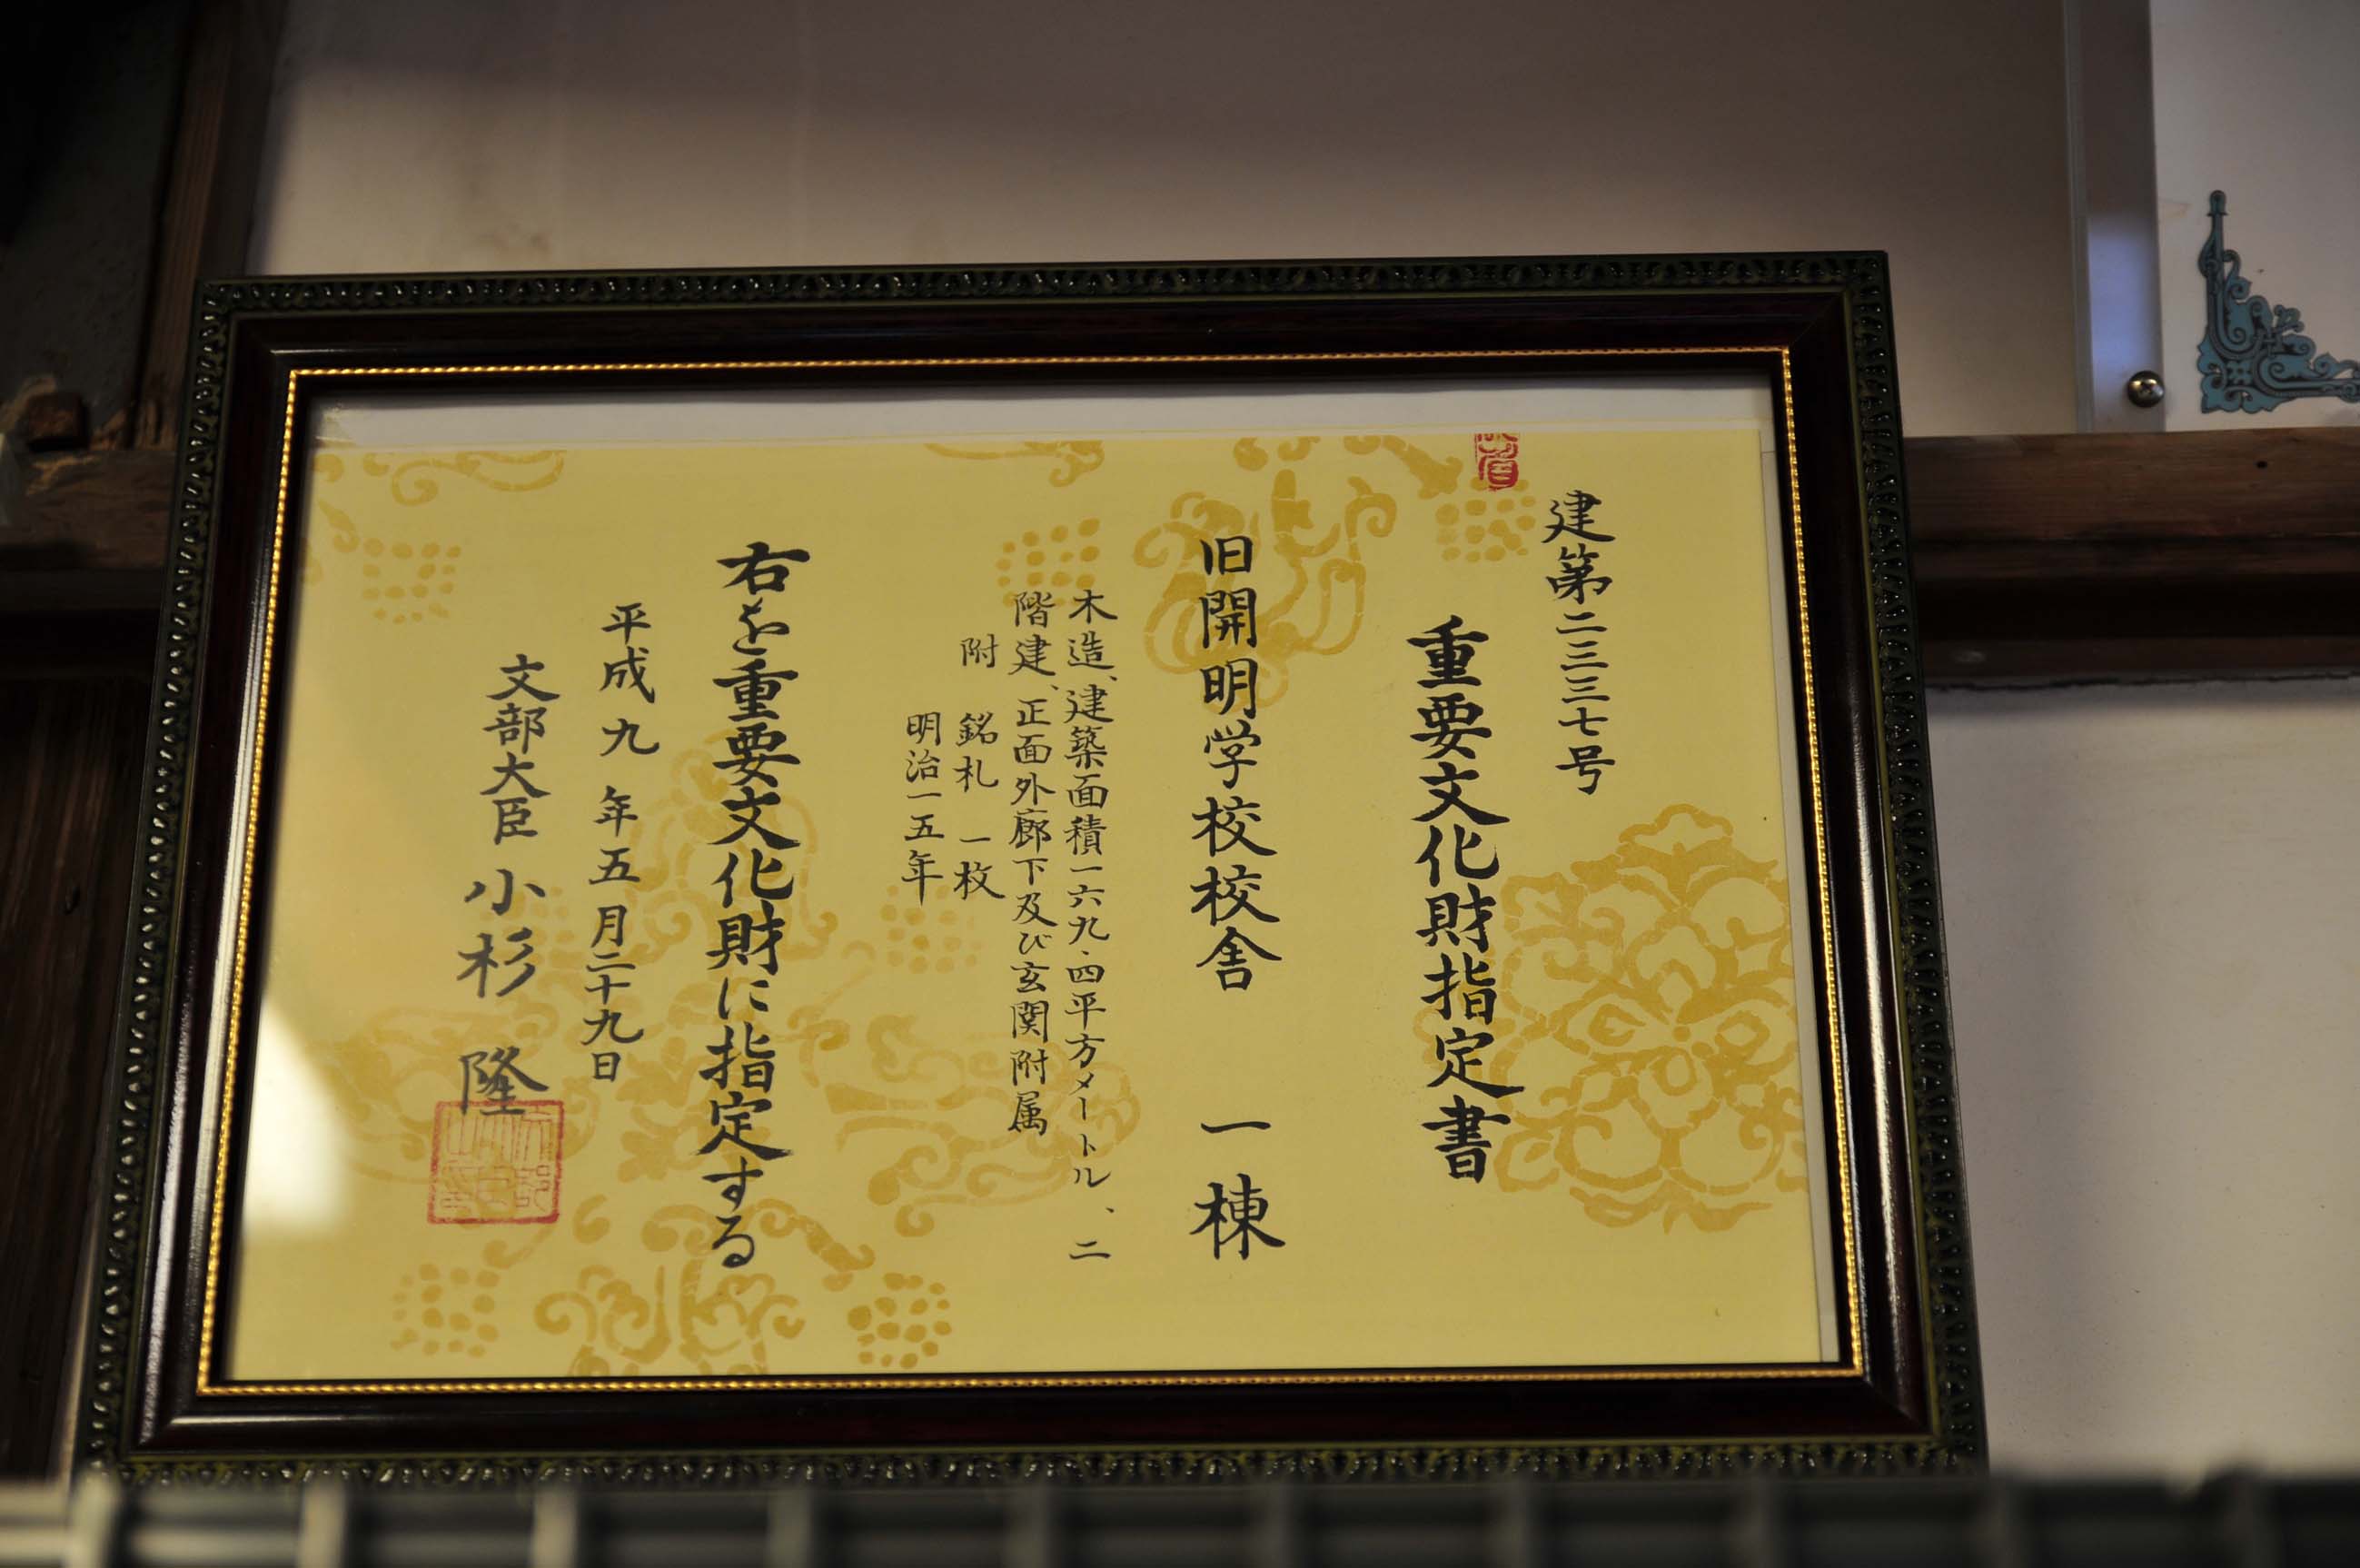 建第二三三七号
重要文化財指定書
旧開明学校校舎 一棟
木造、建築面積一六九・四平方メートル、二
階建、正面外廊下及び玄関附属
附 銘札 一枚
明治一五年
右を重要文化財に指定する
平成九年五月二十九日
文部大臣 小杉 隆